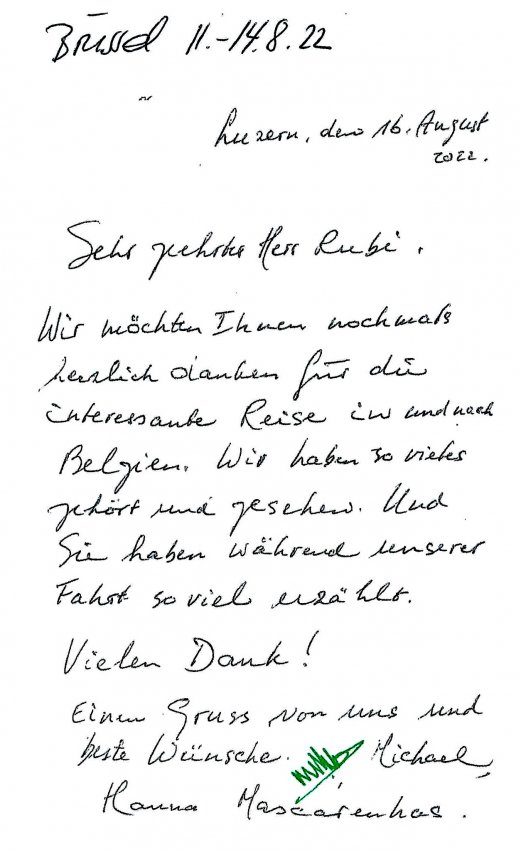 Brüssel 11.-14.8.22
Luzern, den 16. August
2022.
Sehr geehrter Herr Rubi.
Wir möchten Ihnen nochmals
herzlich danken für die
interessante Reise in und nach
Belgien. Wir haben so vieles
gehört und gesehen. Und
Sie haben während unserer
Fahrt so viel erzählt.
Vielen Dank!
Einen Gruss von uns und
beste Wünsche. Michael,
Hanna Mascarenhas.